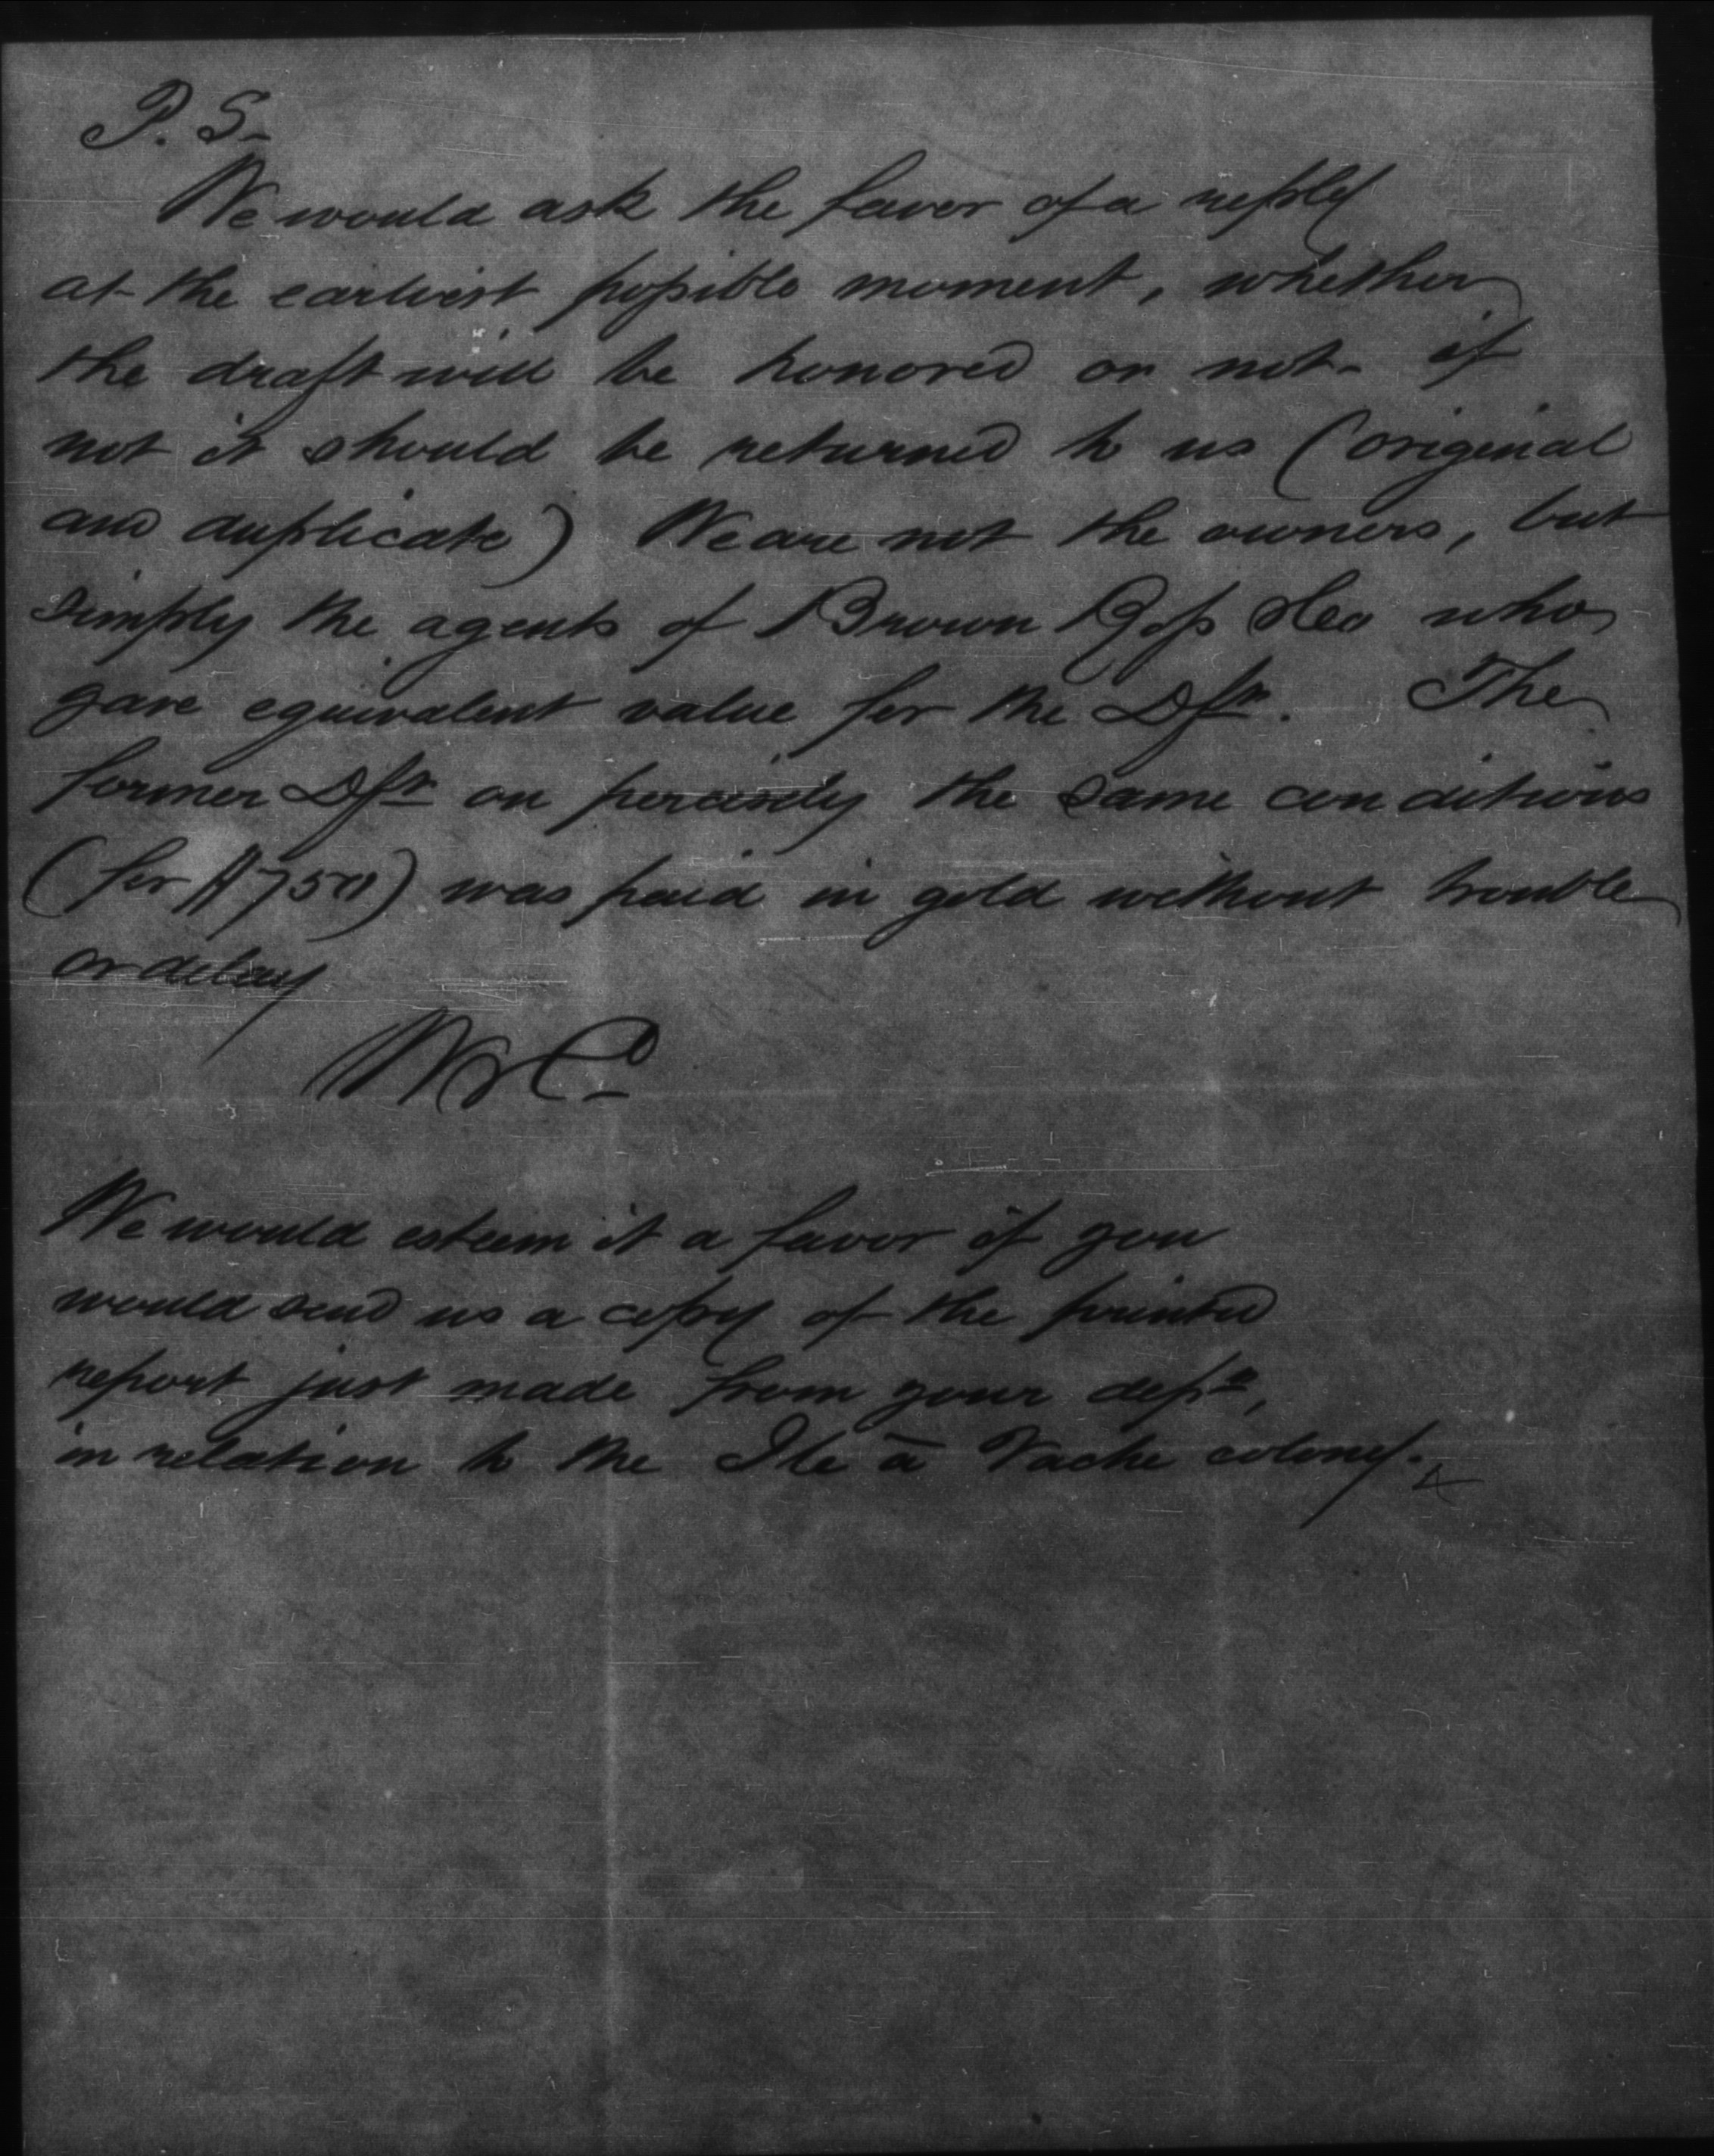 P. S.
We would ask the favor of a reply
at the earliest possible moment, whether
the draft will be honored or not - if
not it should be returned to us (original
and duplicate) We are not the owners, but
simply the agents of Brown & Co who
gave equivalent value for the Dft. The
former Dft on percisely the same conditions
(for $750) was paid in gold without trouble
or delay
We would esteem it a favor if you
would send us a copy of the printed
report just made from your dept,
in relation to the Ile a Vache colony.